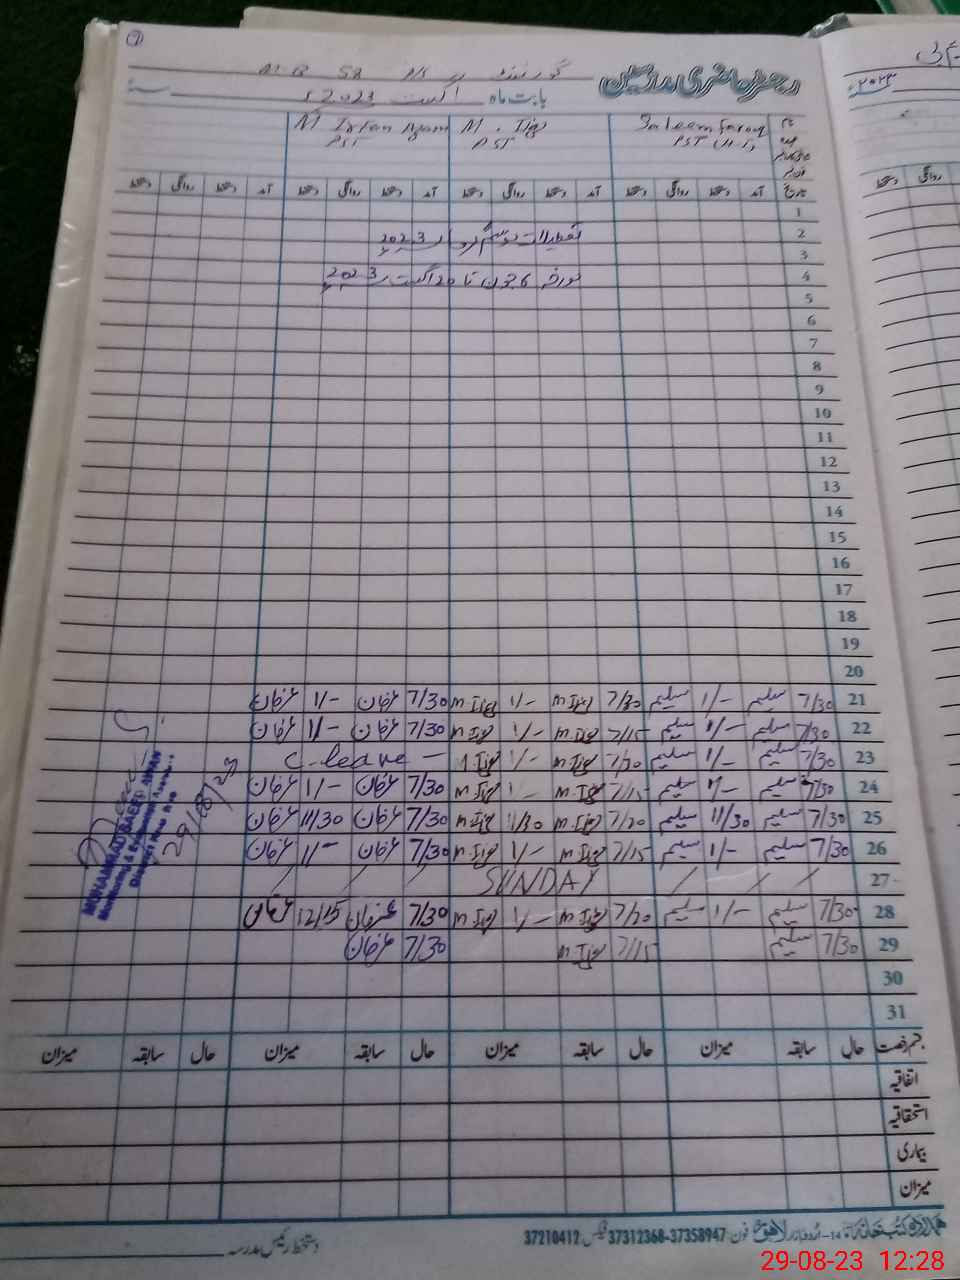 رجسٹر حاضری مدرسین
بابت ماہ اگست 2023
نام Saleem Farooq M. Ijaz M Irfan Azam
عہدہ PST (H.T) PST PST
تاریخ آمد دستخط روانگی دستخط آمد دستخط روانگی دستخط آمد دستخط روانگی دستخط آمد دستخط روانگی دستخط
1
2 تعطیلات موسم گرما 2023
3
4 مورخہ 6 جون تا 20 اگست 2023
5
6
7
8
9
10
11
12
13
14
15
16
17
18
19
20
21 7/30 سلیم 1/- سلیم 7/30 M Ijaz 1/- M Ijaz 7/30 عرفان 11/- عرفان
22 7/30 سلیم 1/- سلیم 7/15 M Ijaz 1/- M Ijaz 7/30 عرفان 11/- عرفان
23 7/30 سلیم 1/- سلیم 7/20 M Ijaz 1/- M Ijaz C-leave
24 7/30 سلیم 1/- سلیم 7/15 M Ijaz 1/- M Ijaz 7/30 عرفان 1/- عرفان
25 7/30 سلیم 11/30 سلیم 7/20 M Ijaz 11/30 M Ijaz 7/30 عرفان 11/30 عرفان
26 7/30 سلیم 1/- سلیم 7/15 M Ijaz 1/- M Ijaz 7/30 عرفان 1/- عرفان
27 SUNDAY
28 7/30 سلیم 1/- سلیم 7/20 M Ijaz 1/- M Ijaz 7/30 عرفان 12/15 عرفان
29 7/30 سلیم 7/15 M Ijaz 7/30 عرفان
30
31
MUHAMMAD SAEED AWAN
Monitoring & Evaluation
District
29/08/23
حال سابقہ میزان حال سابقہ میزان حال سابقہ میزان حال سابقہ میزان
اتفاقیہ
استحقاقیہ
بیماری
میزان
دستخط رئیس مدرسہ
14- اُردو بازار لاہور فون: 37358947-37312368 فیکس 37210412
29-08-23 12:28